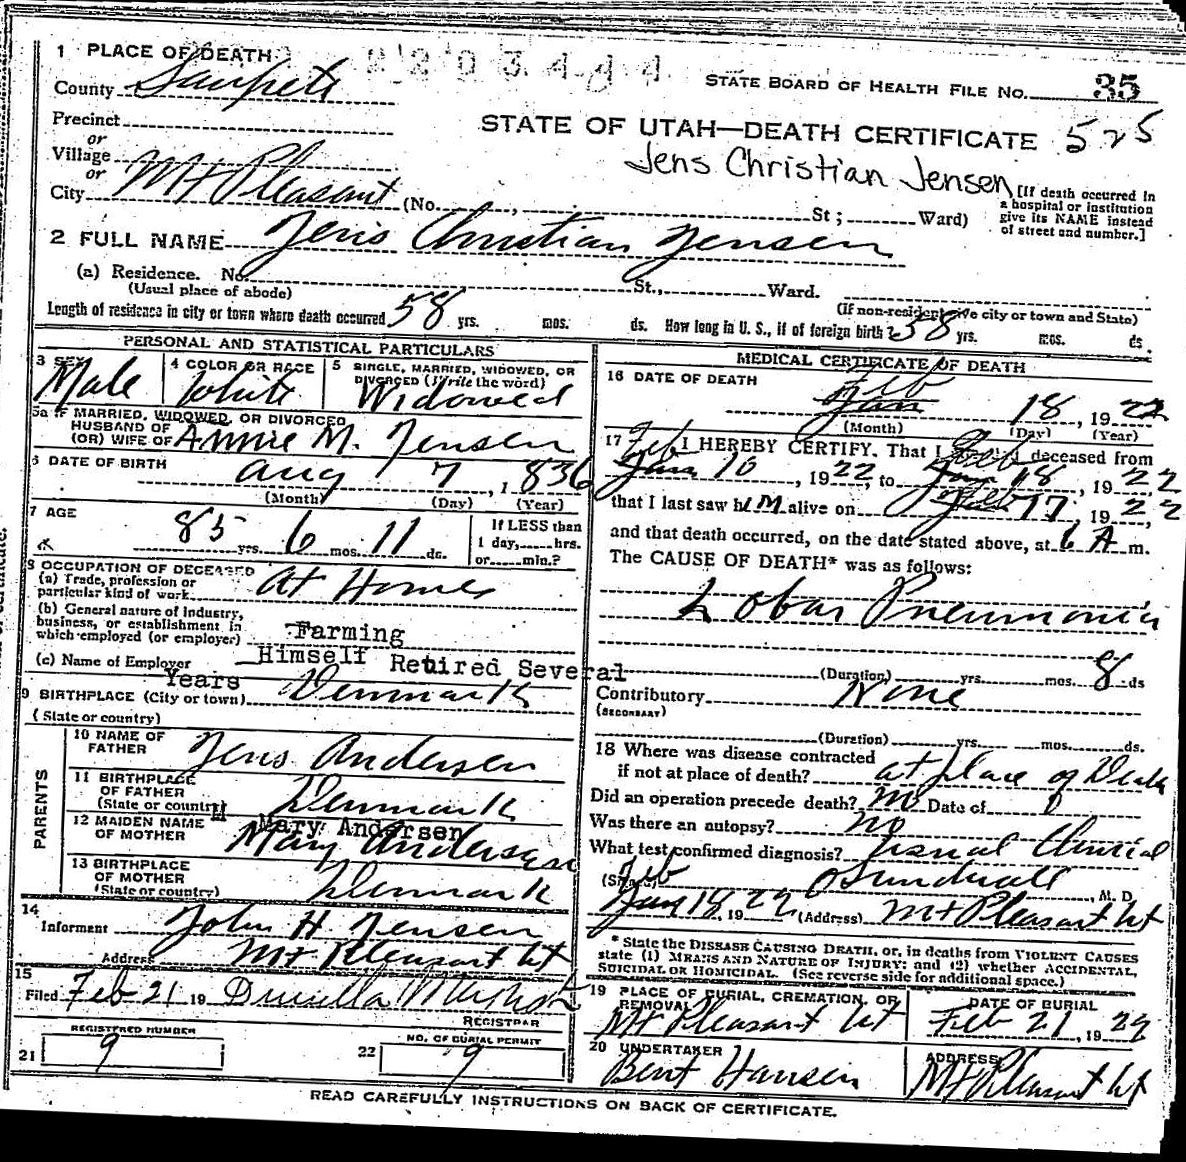 1 PLACE OF DEATH
STATE BOARD OF HEALTH FILE No. 35
County Sanpete
Precinct
STATE OF UTAH—DEATH CERTIFICATE 525
or
Village
Jens Christian Jensen
or
City Mt Pleasant (No. St; Ward)
[If death occurred in a hospital or institution give its NAME instead of street and number.]
2 FULL NAME Jens Christian Jensen
(a) Residence. No. St., Ward.
(Usual place of abode) (If non-resident give city or town and State)
Length of residence in city or town where death occurred 58 yrs. mos. ds. How long in U. S., if of foreign birth? 58 yrs. mos. ds.
PERSONAL AND STATISTICAL PARTICULARS
3 SEX Male
4 COLOR OR RACE White
5 SINGLE, MARRIED, WIDOWED, OR DIVORCED (Write the word) Widowed
5a IF MARRIED, WIDOWED, OR DIVORCED
HUSBAND OF
(OR) WIFE OF Annie M. Jensen
6 DATE OF BIRTH Aug 7, 1836
(Month) (Day) (Year)
7 AGE 85 yrs. 6 mos. 11 ds.
If LESS than
1 day, hrs.
or min.?
8 OCCUPATION OF DECEASED
(a) Trade, profession or
particular kind of work At Home
(b) General nature of industry,
business, or establishment in
which employed (or employer) Farming
(c) Name of Employer Himself Retired Several
Years
9 BIRTHPLACE (City or town) Denmark
(State or country)
PARENTS
10 NAME OF
FATHER Jens Andersen
11 BIRTHPLACE
OF FATHER
(State or country) Denmark
12 MAIDEN NAME
OF MOTHER Mary Andersen
Mary Andersen
13 BIRTHPLACE
OF MOTHER
(State or country) Denmark
14
Informent John H Jensen
Address Mt Pleasant Ut
15
Filed Feb 21 19 Druscilla
REGISTRAR
REGISTERED NUMBER
21 9
NO. OF BURIAL PERMIT
22 9
MEDICAL CERTIFICATE OF DEATH
16 DATE OF DEATH Feb
Jan 18, 1922
(Month) (Day) (Year)
17 I HEREBY CERTIFY. That I deceased from
Feb Jan 10, 1922, to Feb Jan 18, 1922,
that I last saw him alive on Feb 17, 1922,
and that death occurred, on the date stated above, at 6 A m.
The CAUSE OF DEATH* was as follows:
Lobar Pneumonia
(Duration) yrs. mos. 8 ds
Contributory None
(SECONDARY)
(Duration) yrs. mos. ds.
18 Where was disease contracted
if not at place of death? at place of Death
Did an operation precede death? no Date of 0
Was there an autopsy? no
What test confirmed diagnosis? Usual Clinical
(Signed) O Sundwall, M. D.
Feb
Jan 18, 1922 (Address) Mt Pleasant Ut
* State the DISEASE CAUSING DEATH, or, in deaths from VIOLENT CAUSES
state (1) MEANS AND NATURE OF INJURY; and (2) whether ACCIDENTAL,
SUICIDAL OR HOMICIDAL. (See reverse side for additional space.)
19 PLACE OF BURIAL, CREMATION, OR
REMOVAL Mt Pleasant Ut
DATE OF BURIAL
Feb 21, 1922
20 UNDERTAKER
Bent Hansen
ADDRESS
Mt Pleasant Ut
READ CAREFULLY INSTRUCTIONS ON BACK OF CERTIFICATE.